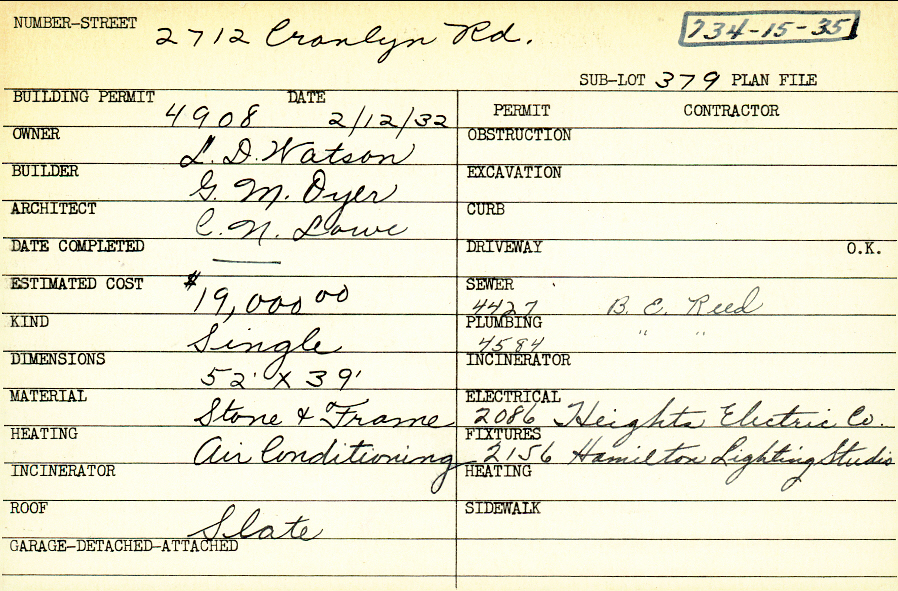 NUMBER-STREET 2712 Cranlyn Rd. 734-15-35
SUB-LOT 379 PLAN FILE
BUILDING PERMIT 4908 DATE 2/12/32 PERMIT CONTRACTOR
OWNER L. D. Watson OBSTRUCTION
BUILDER G. M. Dyer EXCAVATION
ARCHITECT C. N. Lowe CURB
DATE COMPLETED — DRIVEWAY O.K.
ESTIMATED COST $19,000 00 SEWER 4427 B. E. Reed
KIND Single PLUMBING 4584 " "
DIMENSIONS 52' X 39' INCINERATOR
MATERIAL Stone & Frame ELECTRICAL 2086 Heights Electric Co.
HEATING Air Conditioning FIXTURES 2156 Hamilton Lighting Studio
INCINERATOR HEATING
ROOF Slate SIDEWALK
GARAGE-DETACHED-ATTACHED